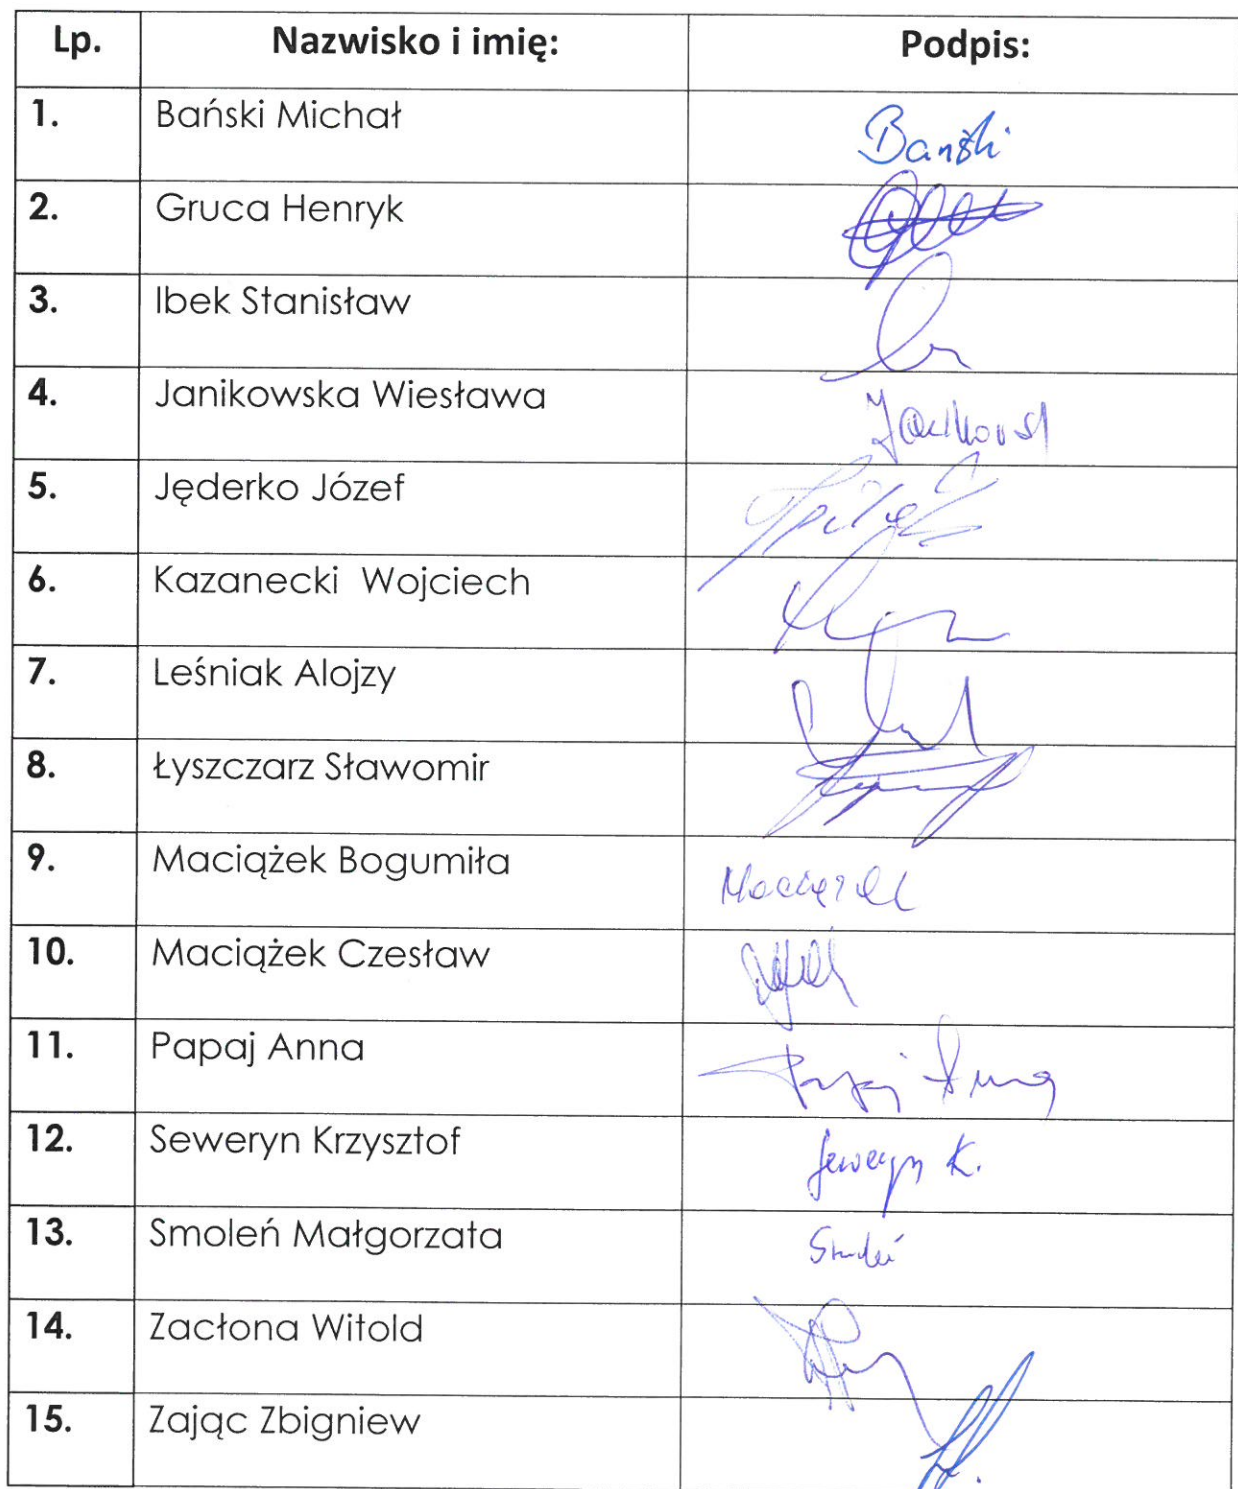 Lp. Nazwisko i imię: Podpis:
1. Bański Michał Bański
2. Gruca Henryk
3. Ibek Stanisław
4. Janikowska Wiesława
5. Jęderko Józef
6. Kazanecki Wojciech
7. Leśniak Alojzy
8. Łyszczarz Sławomir
9. Maciążek Bogumiła Maciążek
10. Maciążek Czesław
11. Papaj Anna Papaj Anna
12. Seweryn Krzysztof Seweryn K.
13. Smoleń Małgorzata Smoleń
14. Zacłona Witold
15. Zając Zbigniew